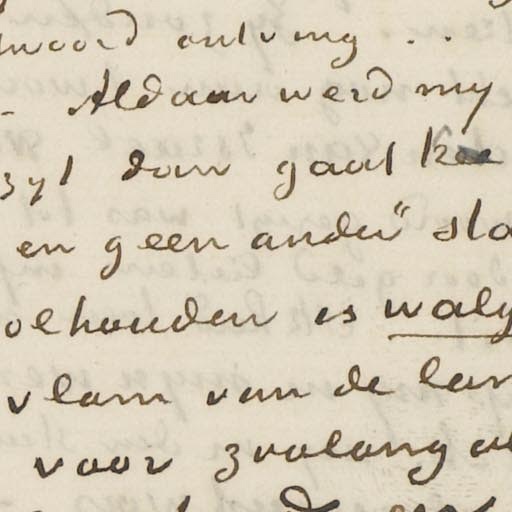 woord ontving . . .
Aldaar werd my
zyt dan gaat
en geen ander" sla
behouden is walg
vlam van de lan
voor zoolang al